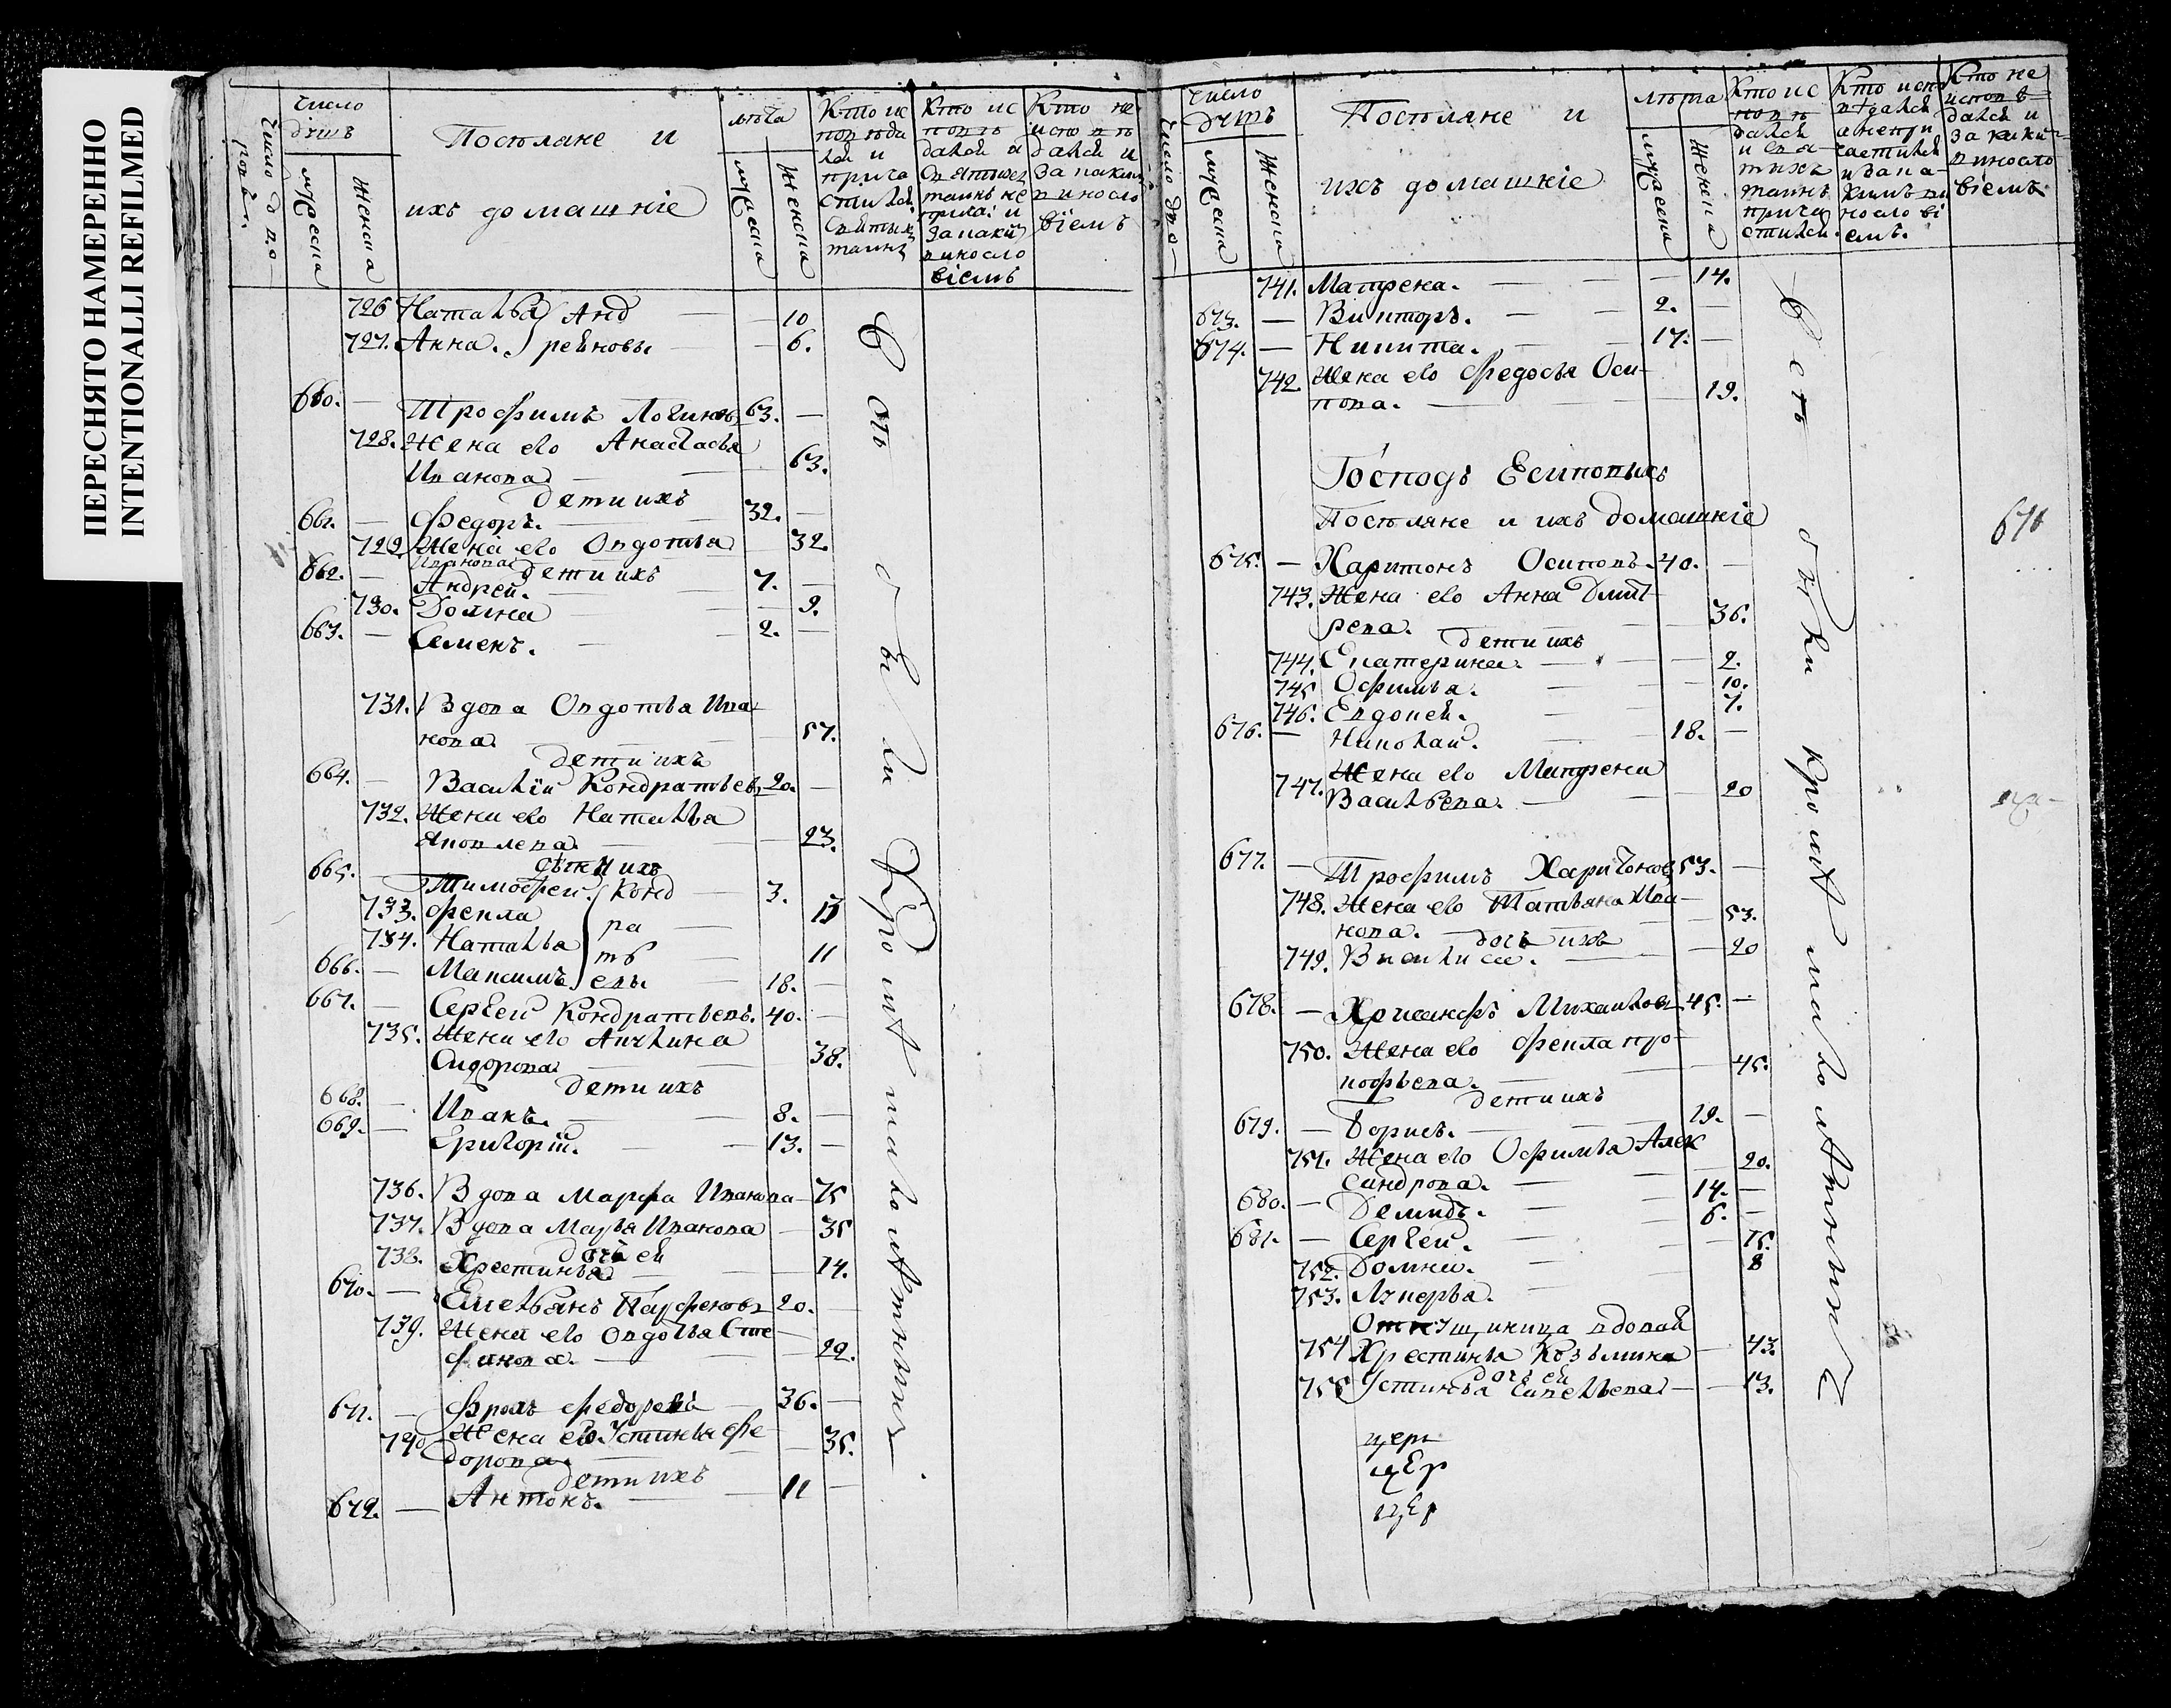 ПЕРЕСНЯТО НАМЕРЕННО
INTENTIONALLI REFILMED
Число дво
ровъ.
Число
душъ
мужеска
женска
Поселяне и
ихъ домашніе
лѣта
мужеска
женска
Кто ис
повѣда
лся и
прича
стился
Святыхъ
таинъ
Кто ис
повѣ
дался а
Святыхъ
таинъ не
прича: и
за каки
виносло
віемъ
Кто не
испо вѣ
дался и
за какимъ
виносло
віемъ
726 Наталья Анд — — 10
727. Анна. рѣевовы — — 6.
660. — Трофимъ Логиновъ 63. —
728. Жена его Анастасья
Иванова — — 63.
дети ихъ
661. — Федоръ. — 32. —
729. Жена его Овдотья — 32.
Иванова дети ихъ
662. — Андрей. — 7. —
730. Домна — — 9.
663. — Семенъ. — 2. —
731. Вдова Овдотья Ива
нова. — — 57.
дети ихъ
664. — Василій Кондратьевъ 20. —
732. Жена его Наталья
Яковлева — — 23.
дѣти ихъ
665. — Тимофей Конд — 3.
733. Фекла ра — 13
734. Наталья ть — 11
666. — Максимъ евы. — 18. —
667. — Сергей Кондратьевъ. 40. —
735. Жена его Акилина
Сидорова — 38.
дети ихъ
668. — Иванъ. — 8. —
669. — Григорій. — 13. —
736. Вдова Марфа Иванова — 75
737. Вдова Марья Иванова — 35
дочь ей
738. Хрестинья — — 14.
670. — Емельянъ Парфеновъ 20. —
739. Жена его Овдотья Сте
фанова. — — 22.
671. — Фролъ Федоровъ — 36. —
740 Жена его Устинья Фе
дорова. — — 35.
дети ихъ
672. — Антонъ. — 11 —
Число дво
Число
душъ
мужеска
женска
Поселяне и
ихъ домашніе
лѣта
мужеска
женска
Кто ис
повѣ
дался
и свя
тыхъ
таинъ
прича
стился.
Кто испо
вѣдался
а непри
частился
и за ка
кимъ ви
носло ві
емъ.
Кто не
исповѣ
дался и
за какимъ
виносло
віемъ.
741. Матрена. — — 14.
673. — Викторъ. — 2. —
674. — Никита. — 17. —
742 Жена его Федосья Оси
пова. — — 19.
Господъ Есиповыхъ
Поселяне и ихъ домашніе
671
675. — Харитонъ Осиповъ 40. —
743. Жена его Анна Дмит
рева. — — 36.
дети ихъ
744. Екатерина. — — 2.
745 Офимья. — — 10.
746. Евдокея. — — 7.
676. — Николай. — 18. —
747. Жена его Матрена
Васильева. — — 20
677. — Трофимъ Харитоновъ 53. —
748. Жена его Татьяна Ива
нова. — — 53.
дочь ихъ
749. Василиса. — — 20
678. — Хрисанфъ Михаиловъ 45. —
750. Жена его Фекла про
кофьева. — — 45.
дети ихъ
679. — Борисъ. — 19. —
751. Жена его Офимья Алек
сандрова. — — 20.
680. — Демидъ. — 14. —
681. — Сергей. — 6. —
752. Домна. — — 15.
753. Лукерья. — 8
Откущикица вдовая
754 Хрестинья Козьмина — 43.
дочь ей
755 Устинья Савельева — — 13.
церк
цер
цер